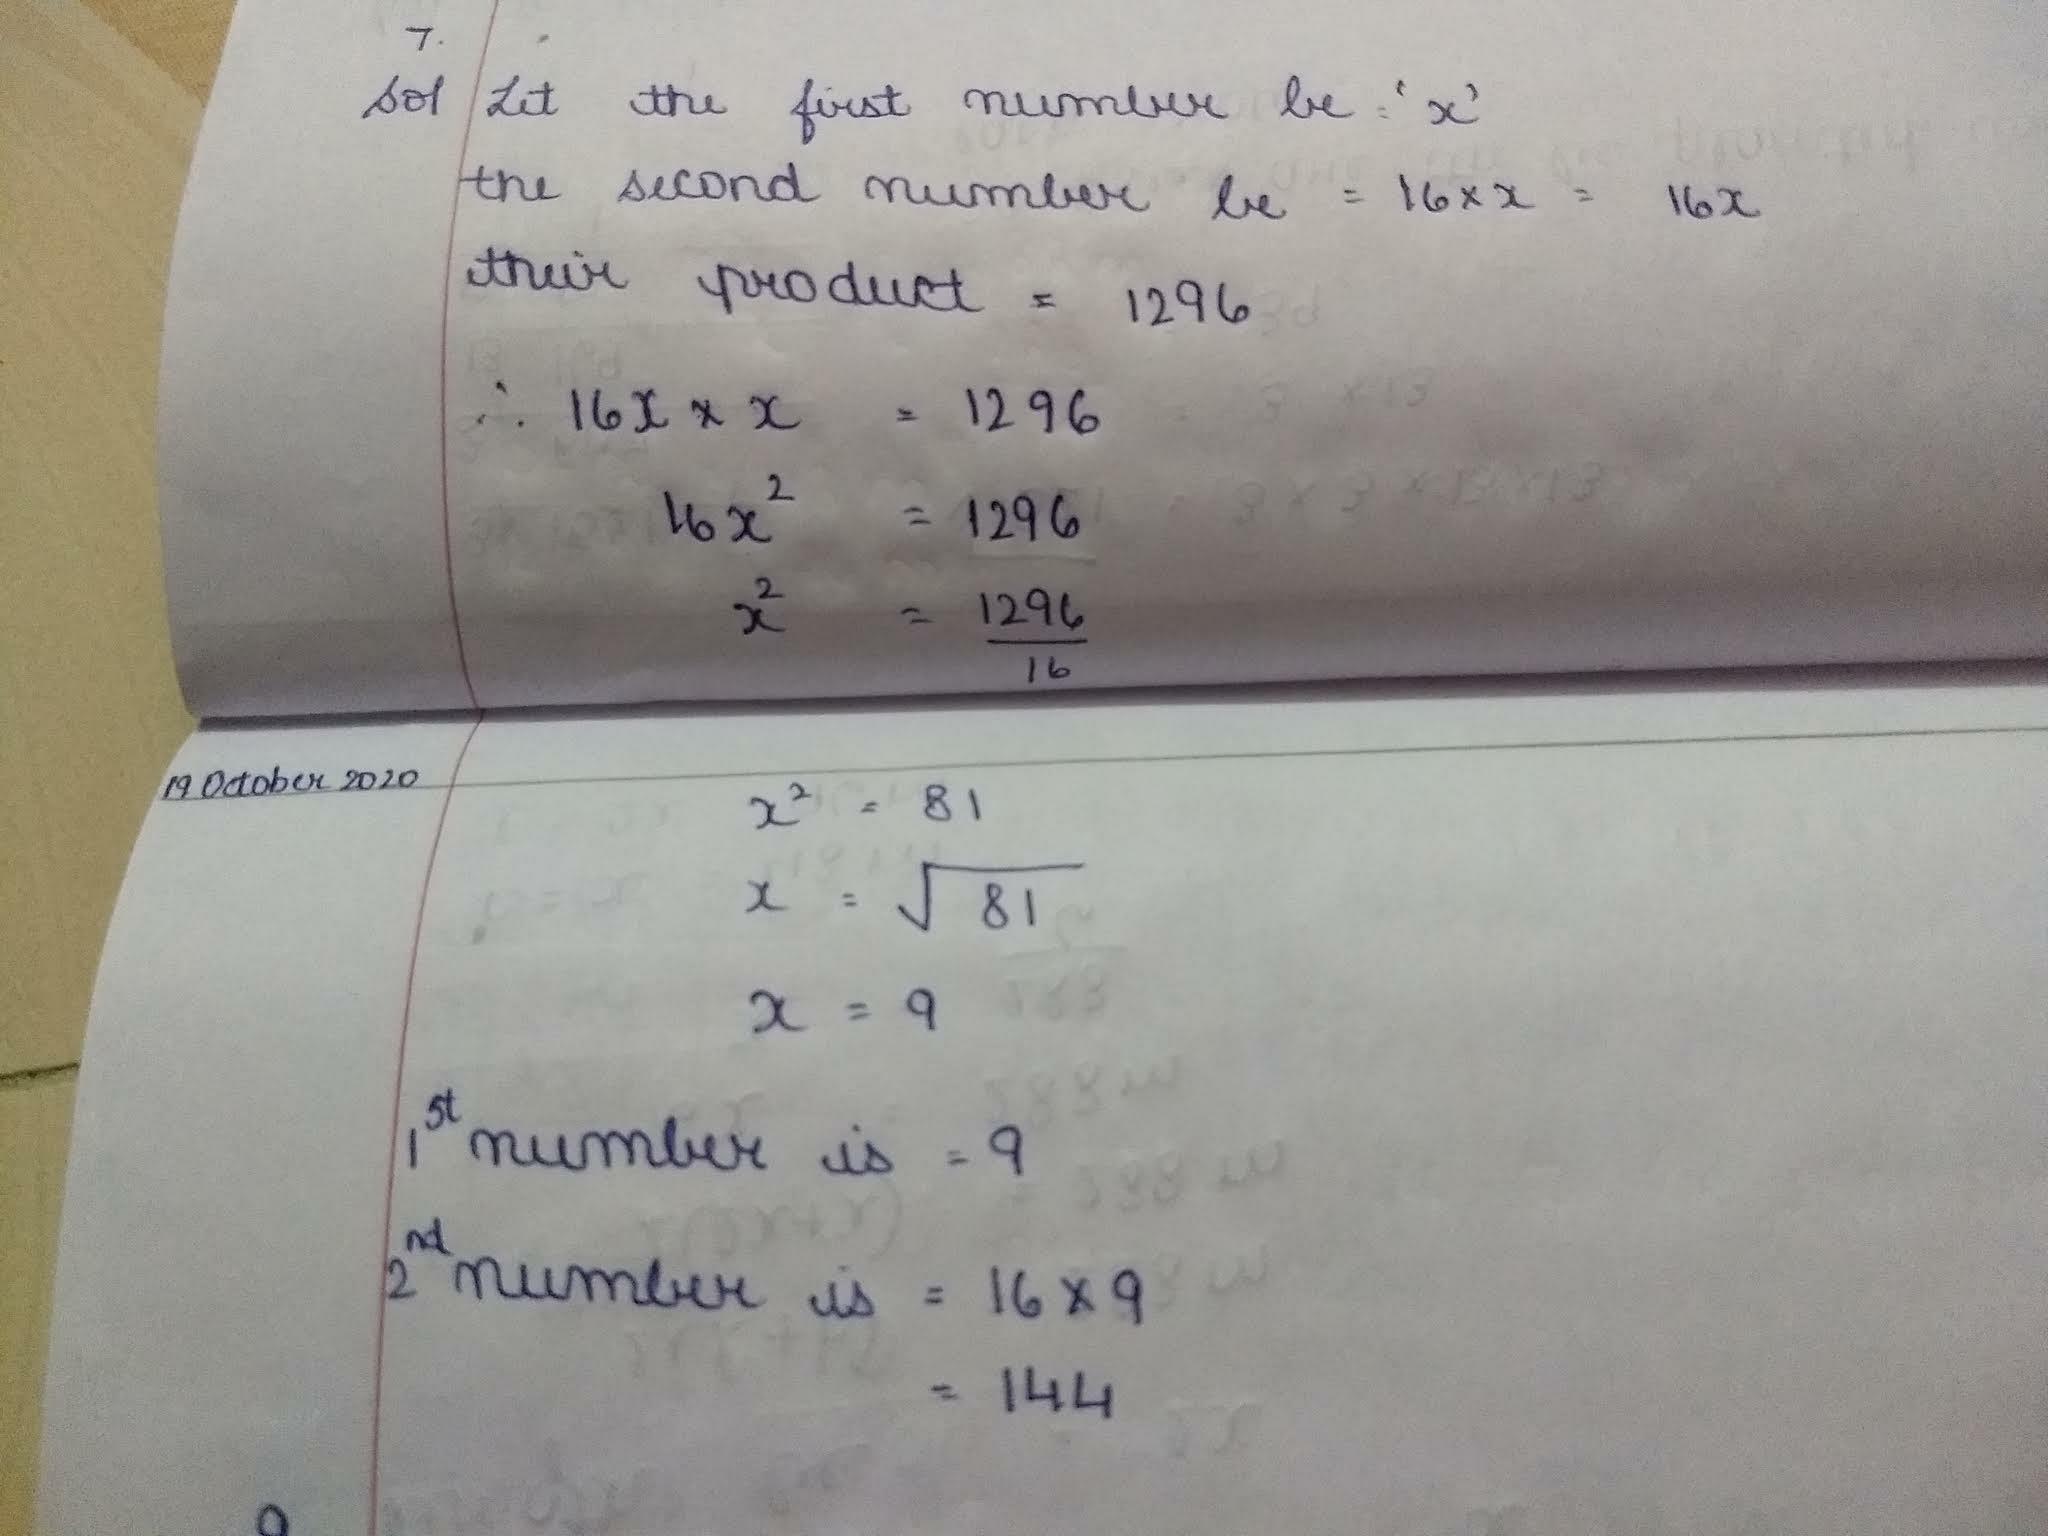 7.
Sol Let the first number be = 'x'
the second number be = 16 × x = 16x
their product = 1296
∴ 16x × x = 1296
16x² = 1296
x² = 1296/16
19 October 2020
x² = 81
x = √81
x = 9
1st number is = 9
2nd number is = 16 × 9
= 144